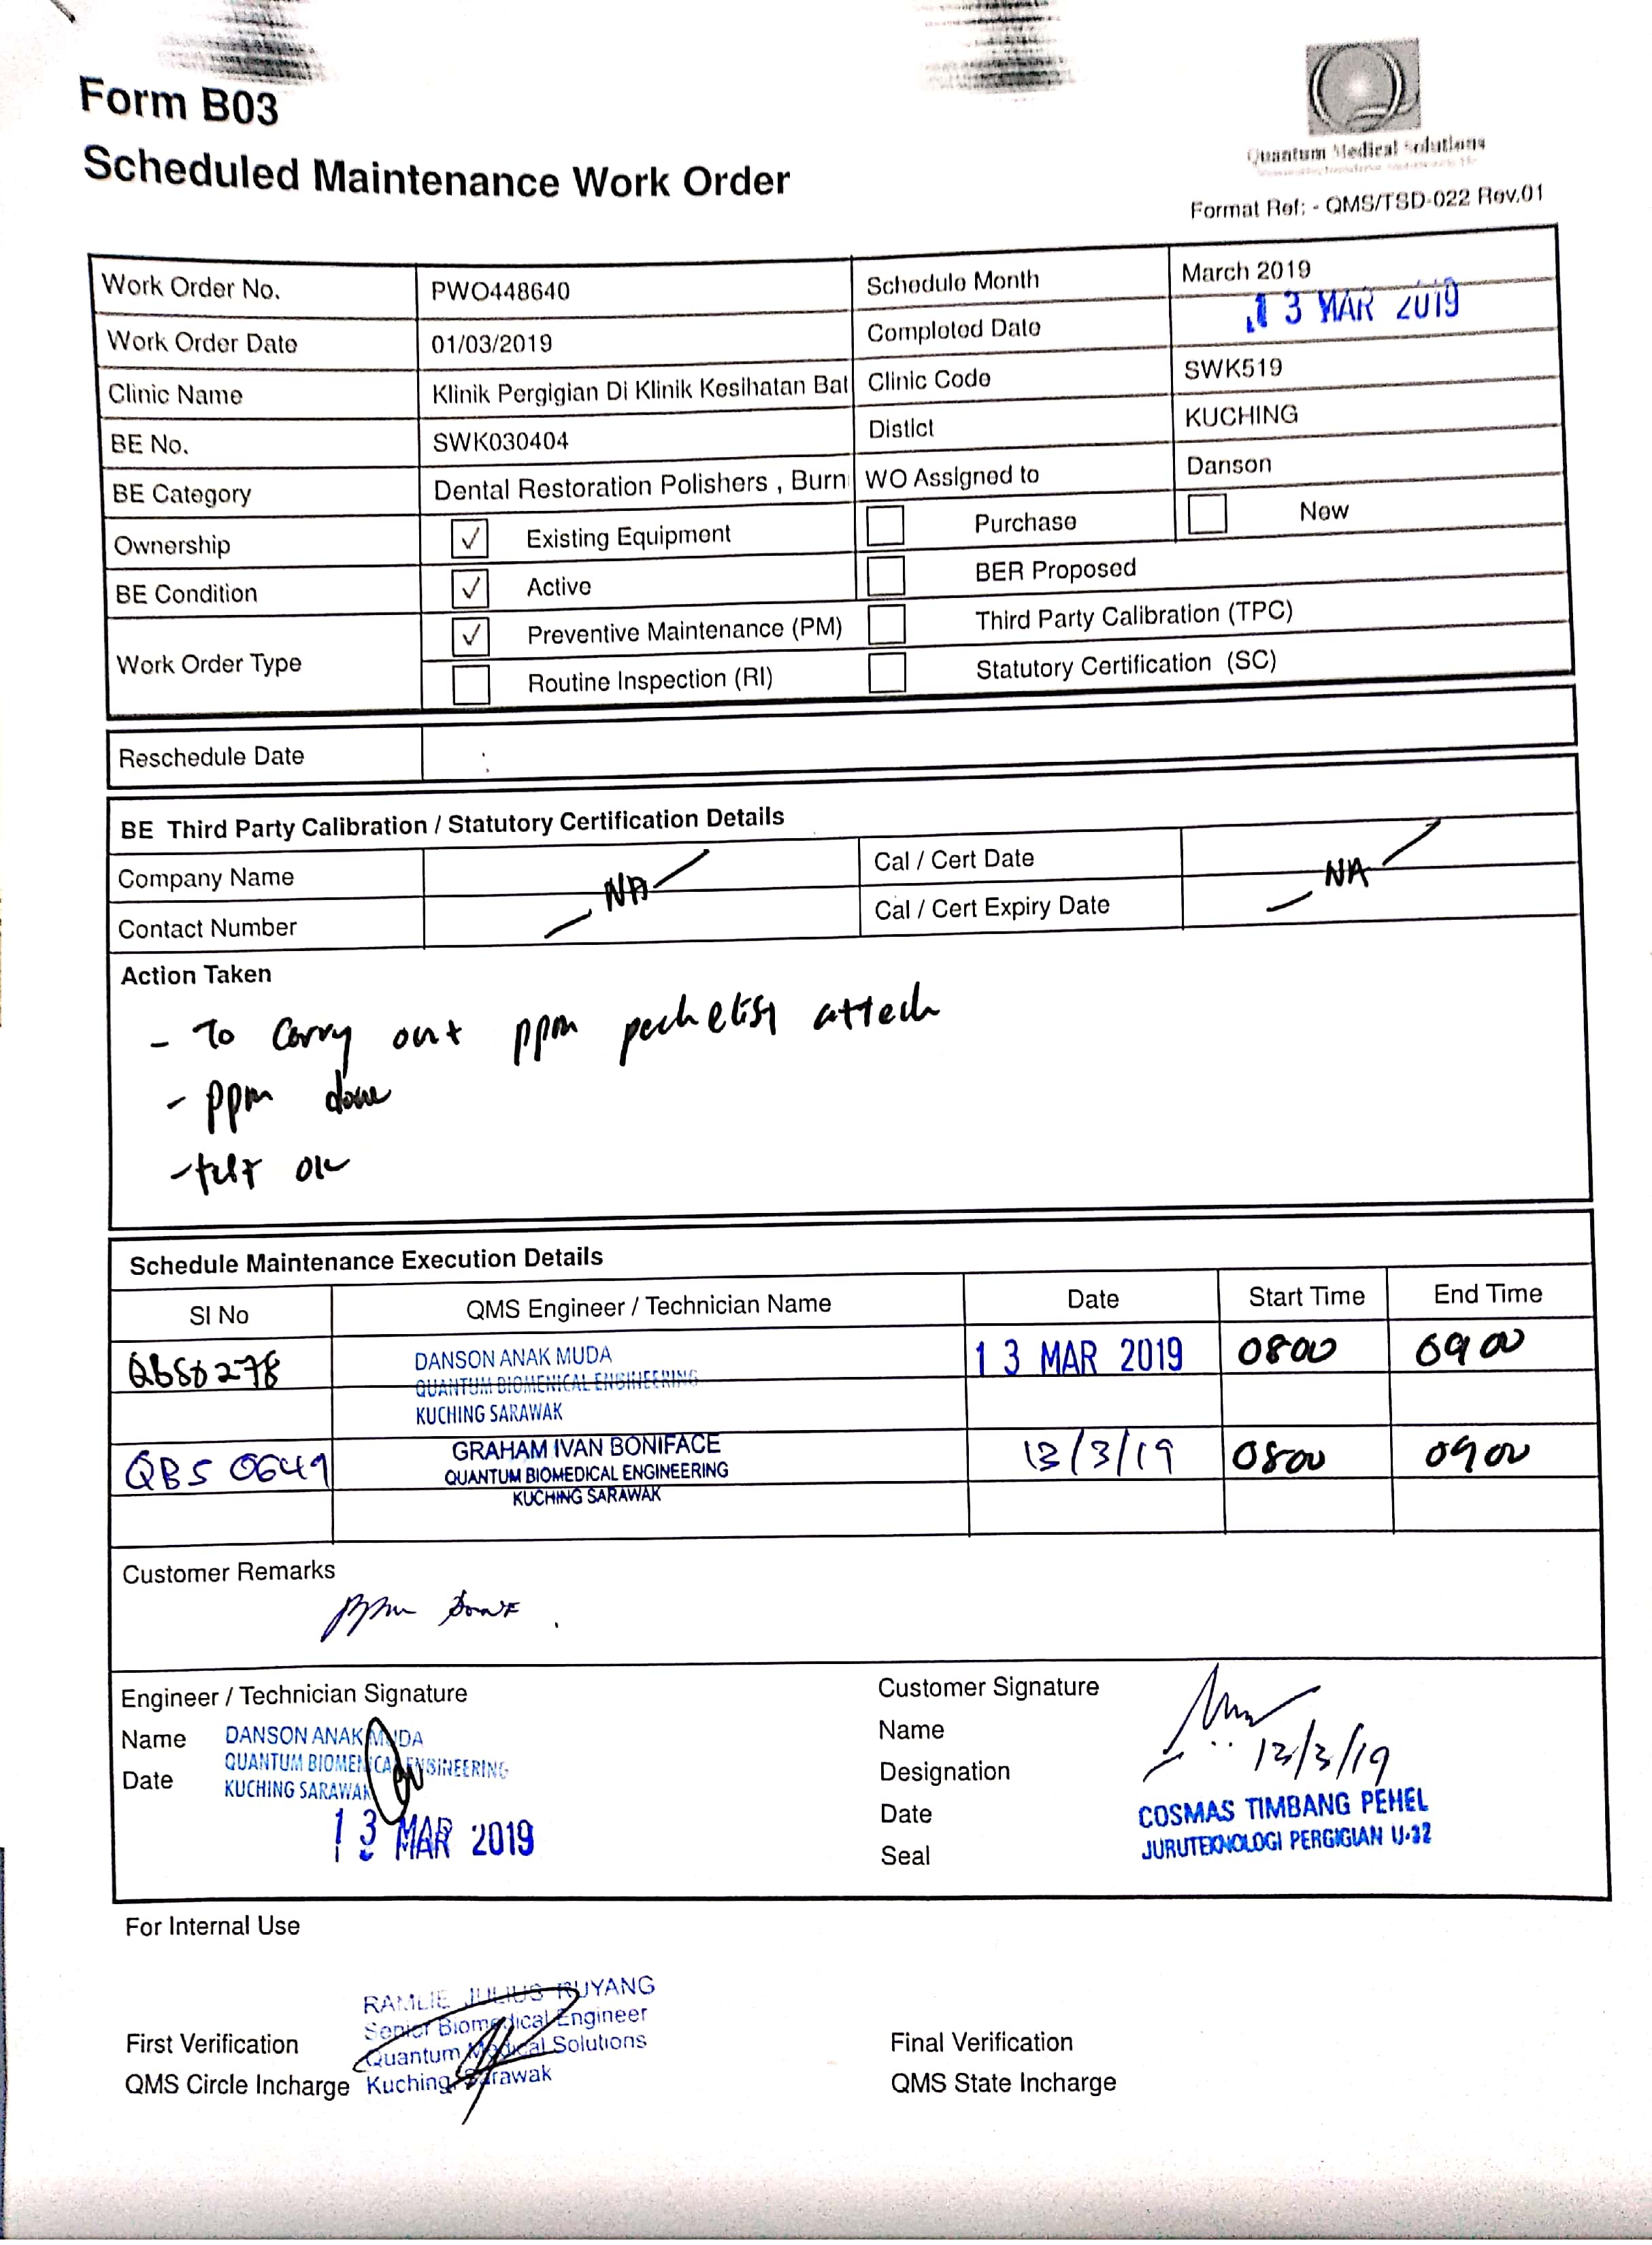 Form B03
Scheduled Maintenance Work Order
Quantum Medical Solutions
Format Ref: - QMS/TSD-022 Rev.01
Work Order No. PWO448640 Schedule Month March 2019
Work Order Date 01/03/2019 Completed Date 13 MAR 2019
Clinic Name Klinik Pergigian Di Klinik Kesihatan Bat Clinic Code SWK519
BE No. SWK030404 Distict KUCHING
BE Category Dental Restoration Polishers , Burn WO Assigned to Danson
Ownership ✓ Existing Equipment Purchase New
BE Condition ✓ Active BER Proposed
Work Order Type ✓ Preventive Maintenance (PM) Third Party Calibration (TPC)
Routine Inspection (RI) Statutory Certification (SC)
Reschedule Date
BE Third Party Calibration / Statutory Certification Details
Company Name NA Cal / Cert Date NA
Contact Number Cal / Cert Expiry Date
Action Taken
- To carry out ppm attach
- ppm done
- test ok
Schedule Maintenance Execution Details
SI No QMS Engineer / Technician Name Date Start Time End Time
QBS0278 DANSON ANAK MUDA 13 MAR 2019 0800 0900
QUANTUM BIOMENICAL ENGINEERING
KUCHING SARAWAK
QBS 0649 GRAHAM IVAN BONIFACE 13/3/19 0800 0900
QUANTUM BIOMEDICAL ENGINEERING
KUCHING SARAWAK
Customer Remarks
ppm done .
Engineer / Technician Signature Customer Signature
Name DANSON ANAK MUDA Name
QUANTUM BIOMENICAL ENGINEERING 13/3/19
Date KUCHING SARAWAK Designation
13 MAR 2019 Date COSMAS TIMBANG PEHEL
Seal JURUTEKNOLOGI PERGIGIAN U-32
For Internal Use
RAMLIE JULIUS RUYANG
Senior Biomedical Engineer
First Verification Quantum Medical Solutions Final Verification
QMS Circle Incharge Kuching, Sarawak QMS State Incharge